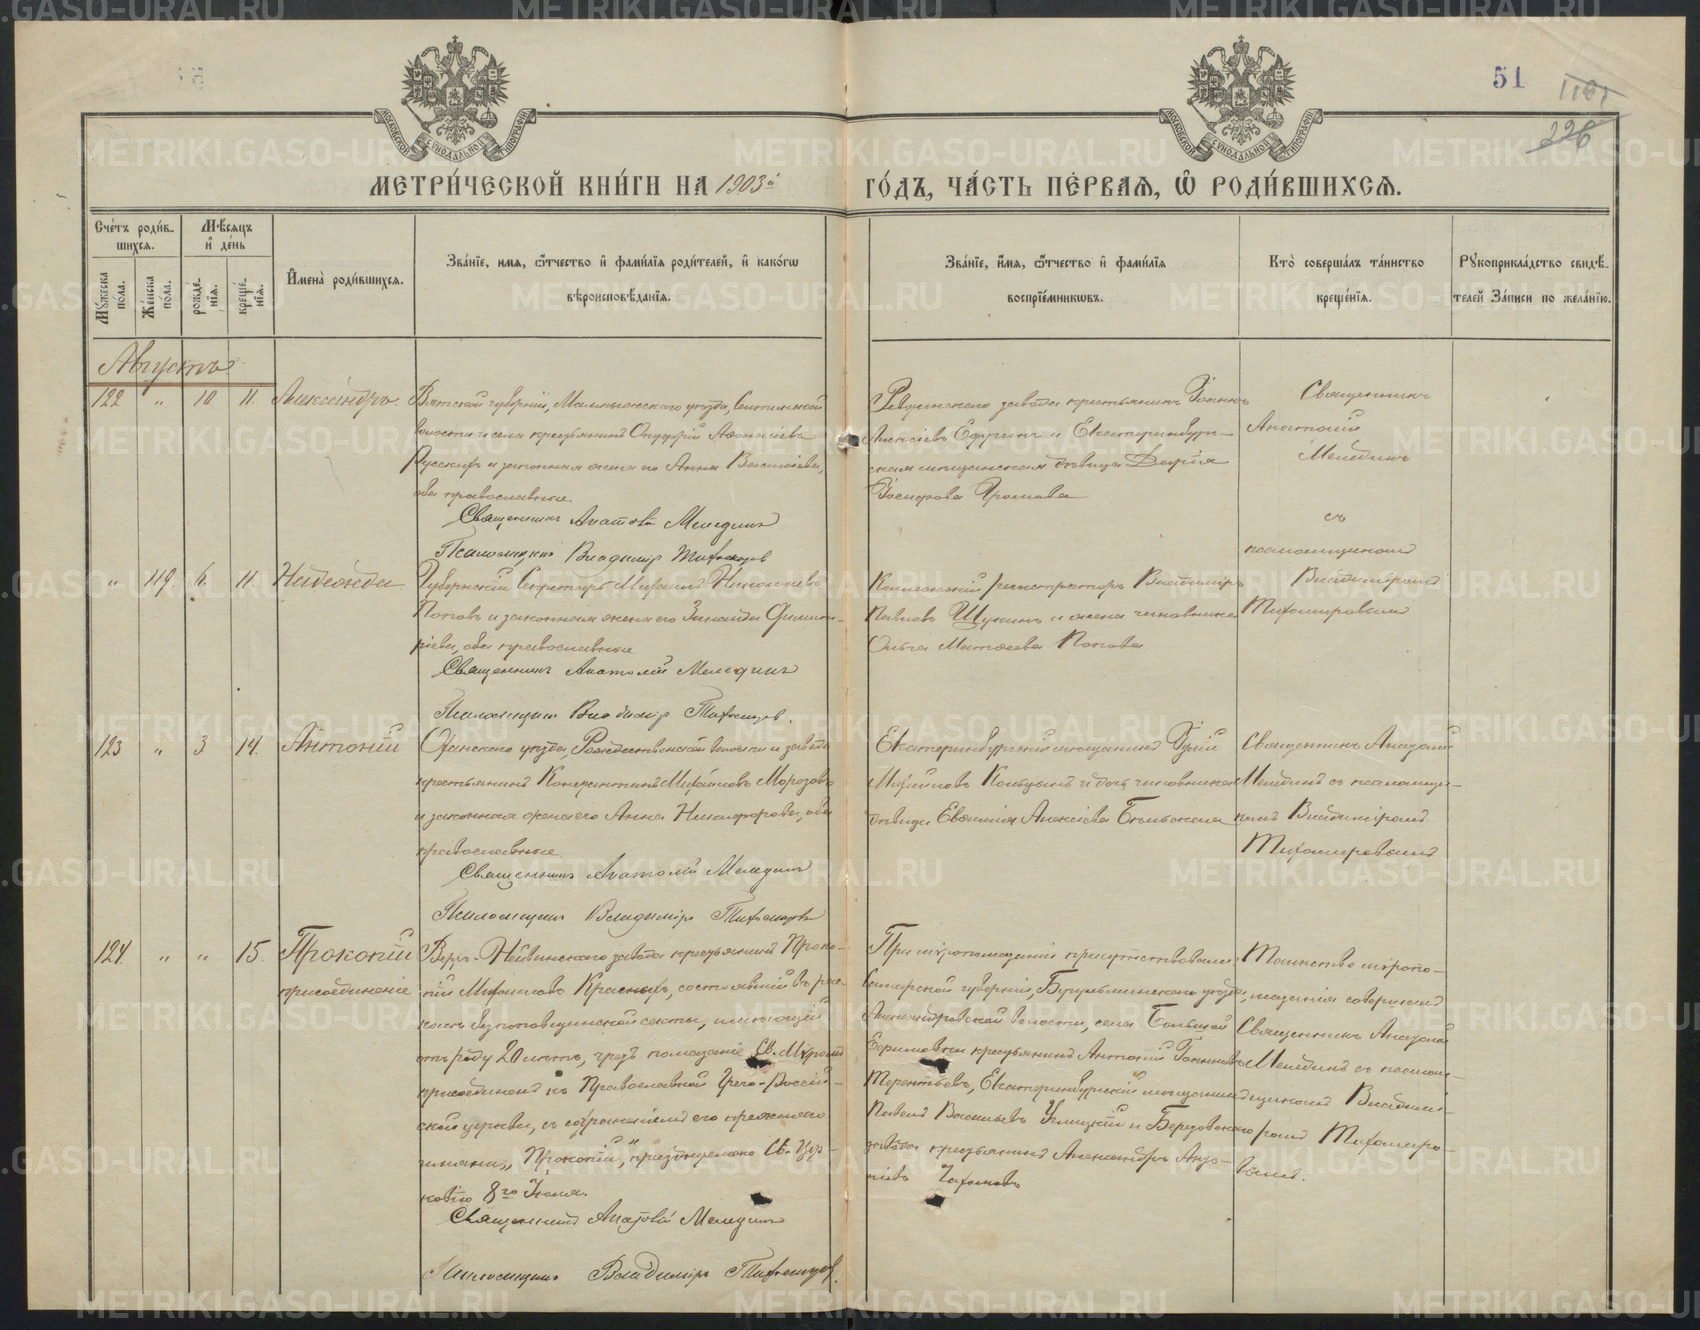 51
1903й
МЕТРИ́ЧЕСКОЙ КНИ́ГИ НА 1903й ГО́ДЪ, ЧА́СТЬ ПЕ́РВАЯ, Ѽ РОДИ́ВШИХСЯ.
Сче́тъ роди́в-
шихся.
Му́жеска по́ла.
Же́нска по́ла.
Мѣ́сяцъ
и҆ де́нь
рожде́-
нїя.
креще́-
нїя.
И҆мена̀ роди́вшихся.
Зва́нїе, имя, ѻ҆́тчество и҆ фами́лїя роди́телей, и҆ како́гѡ
вѣроисповѣ́данїя.
Зва́нїе, и҆́мя, ѻ҆́тчество и҆ фами́лїя
воспрїе́мникѡвъ.
Кто̀ соверша́лъ та́инство
креще́нїя.
Рꙋкоприкла́дство свидѣ́-
телей За́писи по жела́нїю.
Августъ
122 " 10 11. Александръ.
Вятской губерніи, Малмыжского уѣзда,
волости и села крестьянинъ Онуфрій Аѳанасіевъ
Русскихъ и законная жена его Анна Василіева,
оба православные.
Священникъ Анатолій Мелединъ
Псаломщикъ Владиміръ Тихомировъ
Ревдинского завода крестьянинъ Іоаннъ
Алексіевъ и Екатеринбург-
ская мѣщанская дѣвица Дарія
Іосифова Громова
Священникъ
Анатолій
Мелединъ
съ
псаломщикомъ
Владиміромъ
Тихомировымъ
" 119 6. 11. Надежда
Губернскій Секретарь Михаилъ Николаевъ
Поповъ и законная жена его Зинаида
оба православные
Священникъ Анатолій Мелединъ
Псаломщикъ Владиміръ Тихомировъ.
Коллежскій регистраторъ Владиміръ
Павловъ Щукинъ и жена чиновника
Ольга Матѳеева Попова
123 " 3 14. Антоній
Оханского уѣзда, Рождественской волости и завода
крестьянинъ Константинъ Михайловъ Морозовъ
и законная жена его Анна Никифорова, оба
православные
Священникъ Анатолій Мелединъ
Псаломщикъ Владиміръ Тихомировъ
Екатеринбургскій мѣщанинъ Юлій
Михайловъ и дочь чиновника
дѣвица Евгенія Алексіева
Священникъ Анатолій
Мелединъ съ псаломщи-
комъ Владиміромъ
Тихомировымъ
124. " " 15. Прокопій
присоединеніе
Верхъ-Нейвинского завода крестьянинъ Проко-
пій Михаиловъ Красныхъ, состоявшій въ рас-
колѣ безпоповщинской секты, имѣющій
отъ роду 20 лѣтъ, чрезъ помазаніе Св. Мѵромъ
присоединенъ къ Православной Греко-Россій-
ской церкви, съ сохраненіемъ его прежняго
имени, "Прокопій", празднуемаго Св. Цер-
ковію 8го Іюля.
Священникъ Анатолій Мелединъ
Псаломщикъ Владиміръ Тихомировъ.
При мѵропомазаніи присутствовали:
Самарской губерніи, Бугульминского уѣзда,
Александровской волости, села Большой
Ефановки крестьянинъ Антоній Іоанновъ
Терентьевъ, Екатеринбургскій мѣщанинъ
Павелъ Васильевъ и Березовского
завода крестьянинъ Александръ
Таинство мѵропо-
мазанія совершалъ
Священникъ Анатолій
Мелединъ съ псалом-
щикомъ Владимі-
ромъ Тихомиро-
вымъ.
METRIKI.GASO-URAL.RU